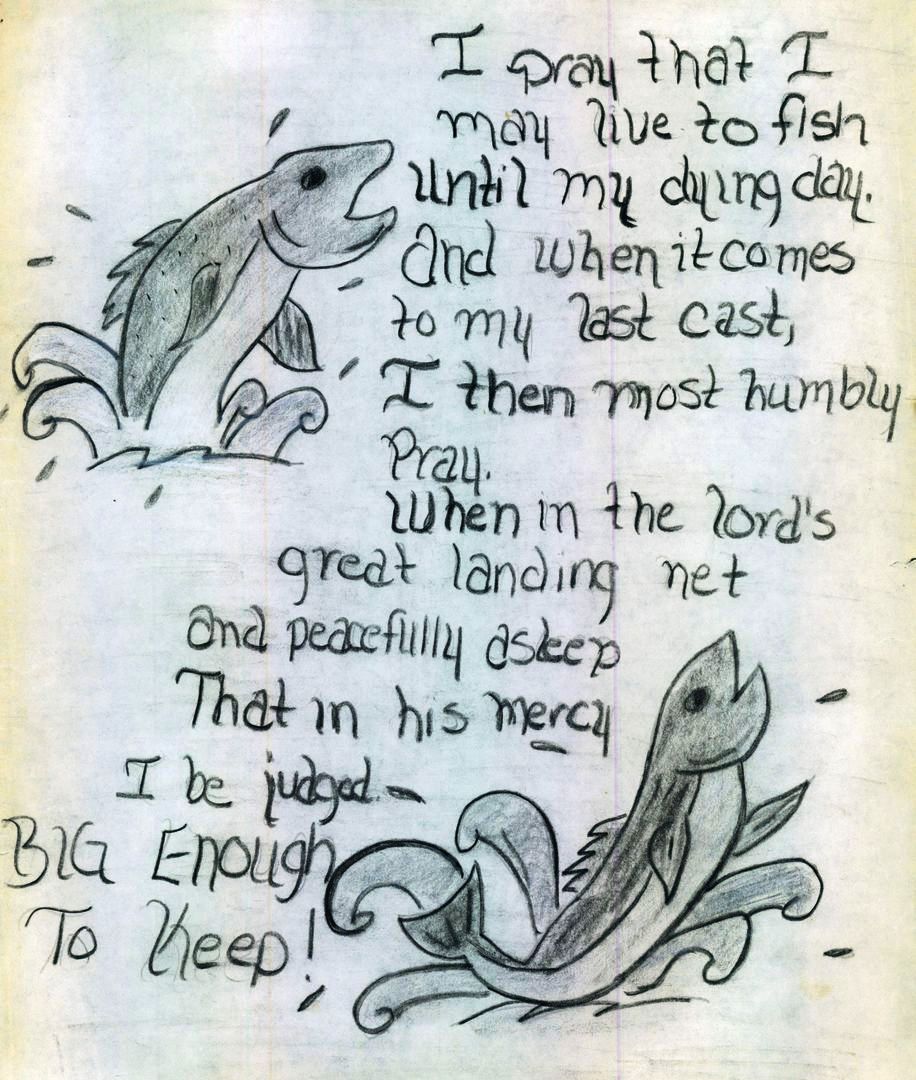 I pray that I
may live to fish
until my dying day.
And when it comes
to my last cast,
I then most humbly
Pray.
When in the lord's
great landing net
and peacefully asleep
That in his mercy
I be judged -
BIG Enough
To Keep!